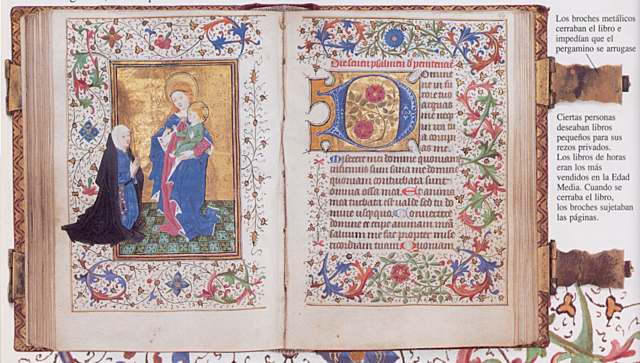 Domine
ne in fu
rore tuo
arguas
me neq
in ira
as me.
Miserere mei domine quoniam
infirmus sum sana me domine
quoniam conturbata sunt
omnia ossa mea. Et anima
mea turbata est valde sed tu do
mine usquequo Convertere
domine et eripe animam meam
salvum me fac propter mi
sericordiam tuam Quoniam
Los broches metálicos
cerraban el libro e
impedían que el
pergamino se arrugase
Ciertas personas
deseaban libros
pequeños para sus
rezos privados.
Los libros de horas
eran los más
vendidos en la Edad
Media. Cuando se
cerraba el libro,
los broches sujetaban
las páginas.